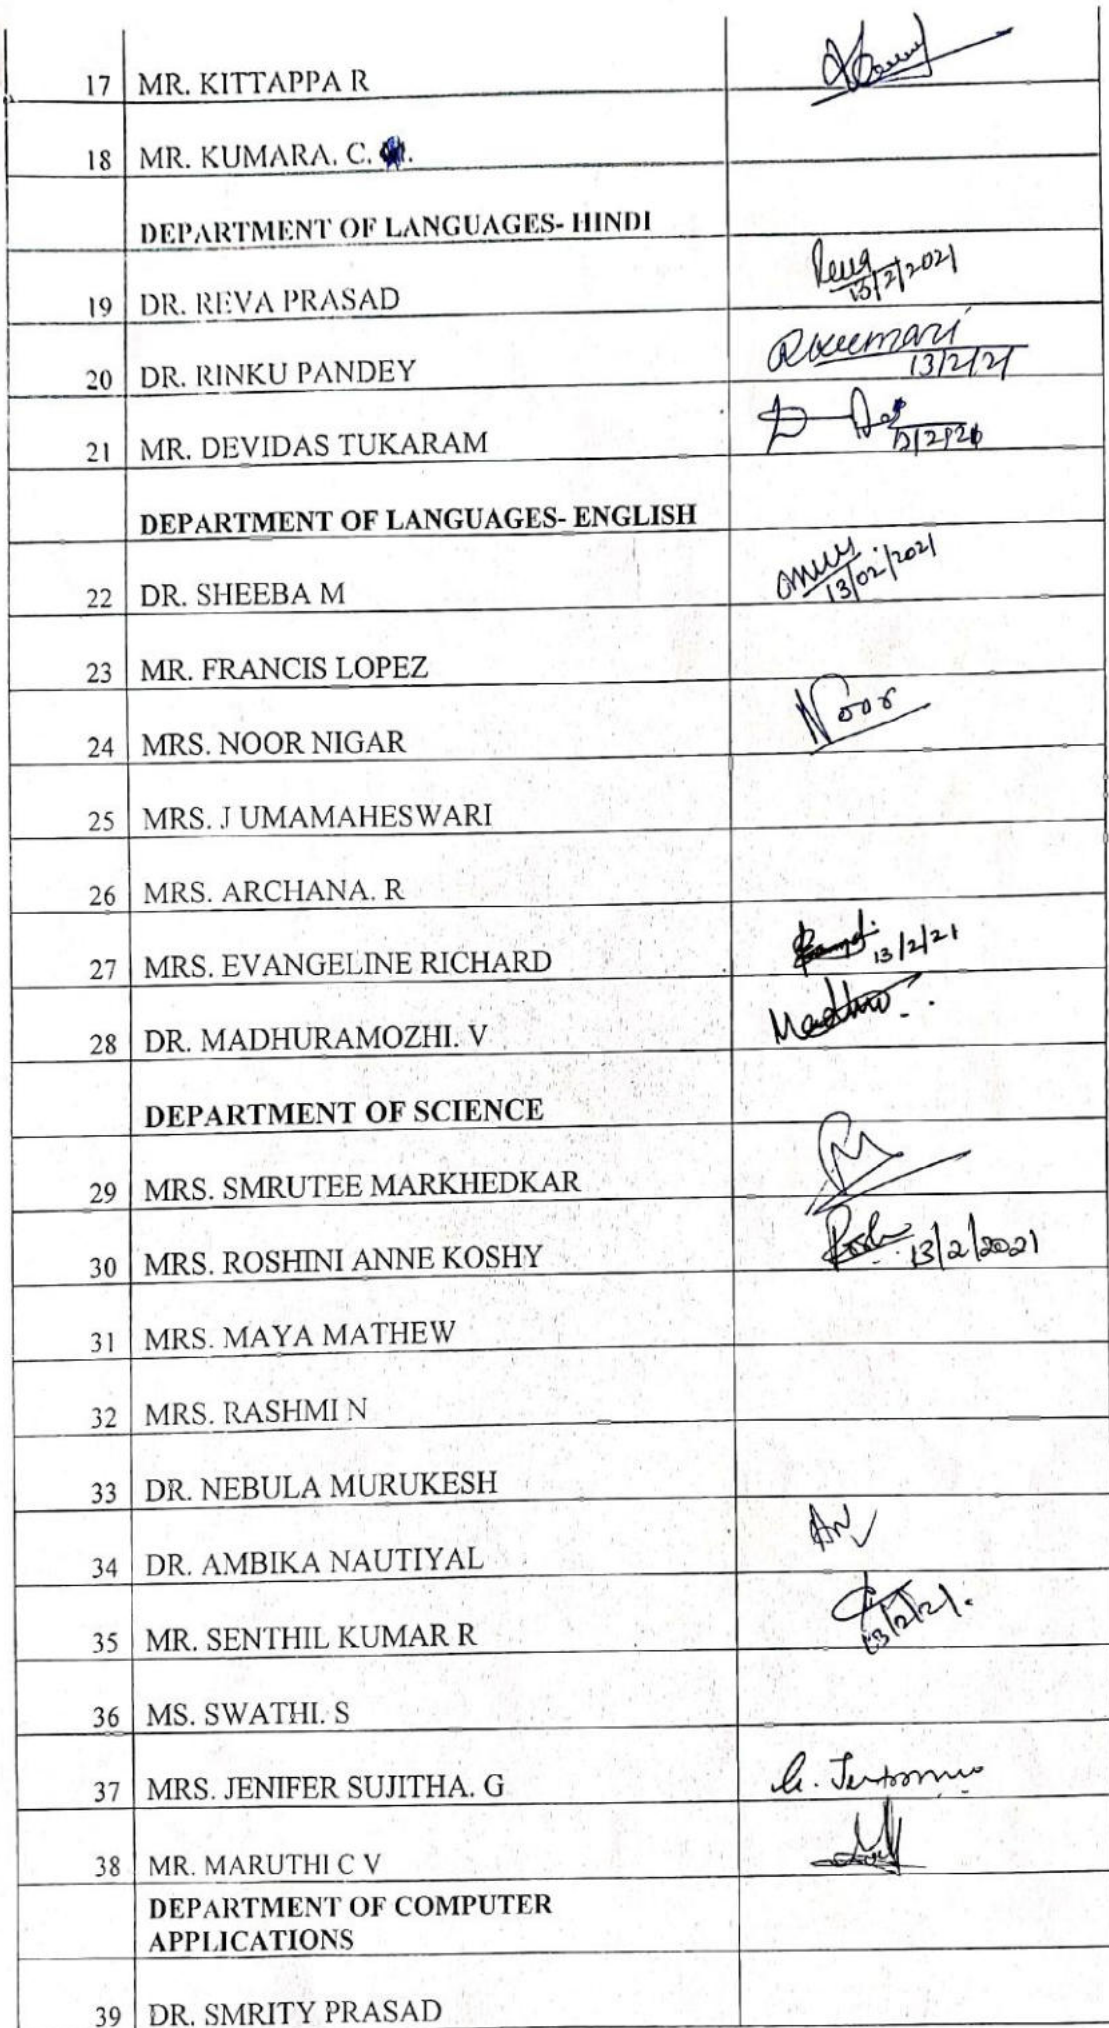 17 MR. KITTAPPA R
18 MR. KUMARA. C.
DEPARTMENT OF LANGUAGES- HINDI
19 DR. REVA PRASAD 13/2/2021
20 DR. RINKU PANDEY Rkumari 13/2/21
21 MR. DEVIDAS TUKARAM
DEPARTMENT OF LANGUAGES- ENGLISH
22 DR. SHEEBA M 13/02/2021
23 MR. FRANCIS LOPEZ
24 MRS. NOOR NIGAR Noor
25 MRS. J UMAMAHESWARI
26 MRS. ARCHANA. R
27 MRS. EVANGELINE RICHARD 13/2/21
28 DR. MADHURAMOZHI. V Madhu
DEPARTMENT OF SCIENCE
29 MRS. SMRUTEE MARKHEDKAR
30 MRS. ROSHINI ANNE KOSHY 13/2/2021
31 MRS. MAYA MATHEW
32 MRS. RASHMI N
33 DR. NEBULA MURUKESH
34 DR. AMBIKA NAUTIYAL AN
35 MR. SENTHIL KUMAR R 13/2/21.
36 MS. SWATHI. S
37 MRS. JENIFER SUJITHA. G
38 MR. MARUTHI C V
DEPARTMENT OF COMPUTER
APPLICATIONS
39 DR. SMRITY PRASAD